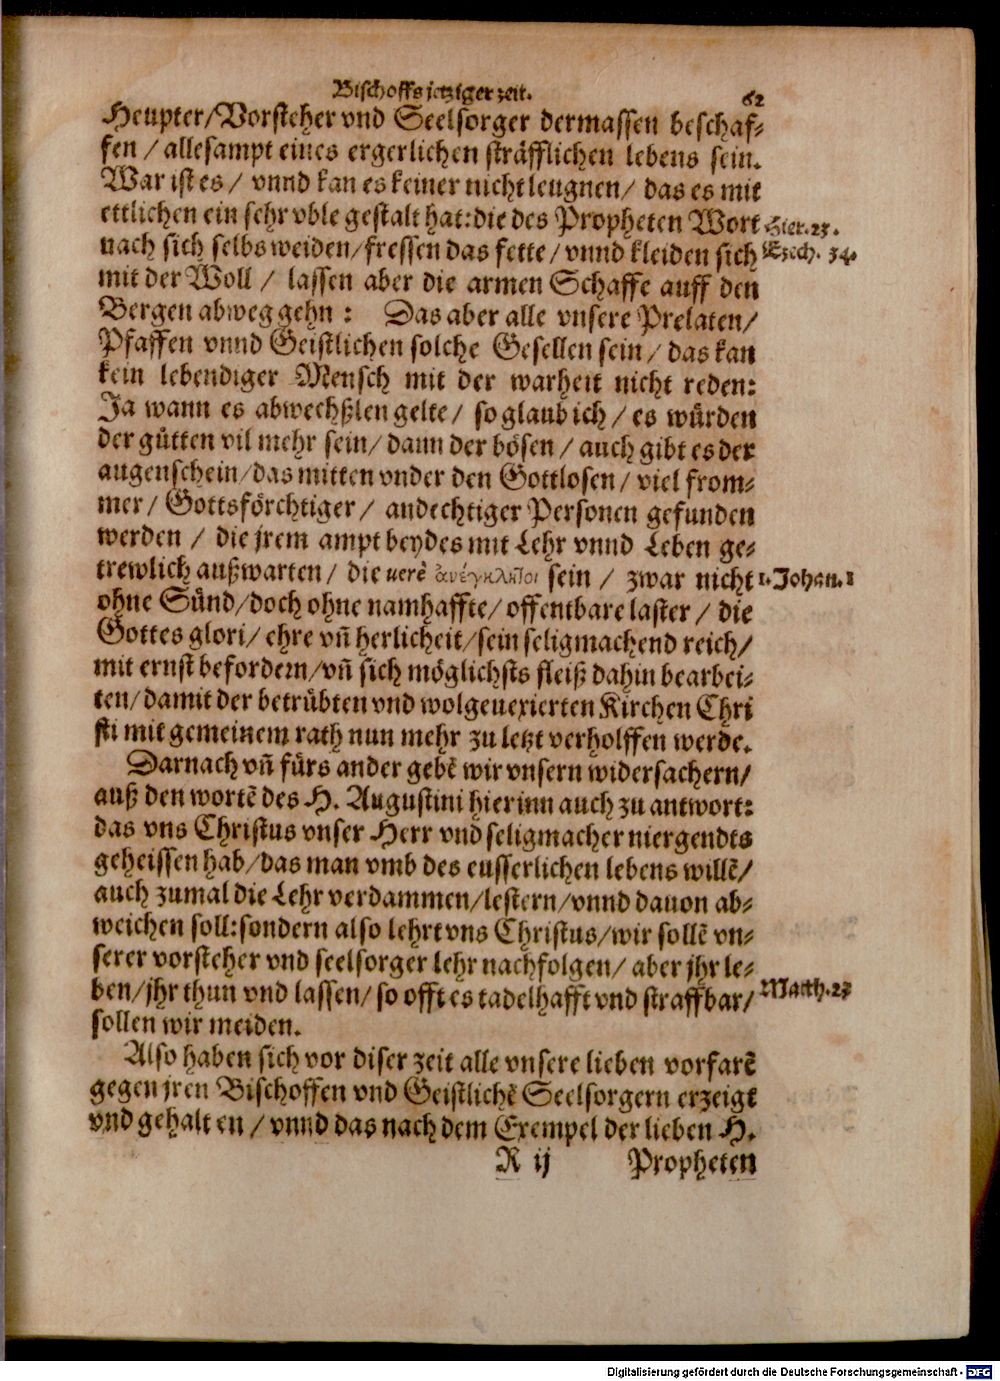 Bischoffs jetziger zeit. 62
Heupter/Vorsteher vnd Seelsorger dermassen beschaf-
fen / allesampt eines ergerlichen sträfflichen lebens sein.
War ist es / vnnd kan es keiner nicht leugnen / das es mit
ettlichen ein sehr vble gestalt hat: die des Propheten Wort Hier. 23.
nach sich selbs weiden/fressen das fette/ vnnd kleiden sich Ezech. 34.
mit der Woll / lassen aber die armen Schaffe auff den
Bergen abweg gehn : Das aber alle vnsere Prelaten/
Pfaffen vnnd Geistlichen solche Gesellen sein / das kan
kein lebendiger Mensch mit der warheit nicht reden:
Ja wann es abwechßlen gelte / so glaub ich / es würden
der gütten vil mehr sein/ dann der bösen / auch gibt es der
augenschein/das mitten vnder den Gottlosen/ viel from-
mer / Gottsförchtiger / andechtiger Personen gefunden
werden / die jrem ampt beydes mit Lehr vnnd Leben ge-
trewlich außwarten / die uerè ἀνέγκλητοι sein / zwar nicht 1. Johan. 1
ohne Sünd/doch ohne namhaffte/ offentbare laster / die
Gottes glori/ ehre vñ herlicheit/sein seligmachend reich/
mit ernst befordern/vñ sich möglichsts fleiß dahin bearbei-
ten/damit der betrübten vnd wolgeuexierten Kirchen Chri
sti mit gemeinem rath nun mehr zu letzt verholffen werde.
Darnach vñ fürs ander gebẽ wir vnsern widersachern/
auß den wortẽ des H. Augustini hierinn auch zu antwort:
das vns Christus vnser Herr vnd seligmacher niergendts
geheissen hab/das man vmb des eusserlichen lebens willẽ/
auch zumal die Lehr verdammen/lestern/vnnd dauon ab-
weichen soll: sondern also lehrt vns Christus/wir sollẽ vn-
serer vorsteher vnd seelsorger lehr nachfolgen/ aber jhr le-
ben/jhr thun vnd lassen/ so offt es tadelhafft vnd straffbar/ Matth. 23
sollen wir meiden.
Also haben sich vor diser zeit alle vnsere lieben vorfarẽ
gegen jren Bischoffen vnd Geistlichẽ Seelsorgern erzeigt
vnd gehalten / vnnd das nach dem Exempel der lieben H.
R ij Propheten
Digitalisierung gefördert durch die Deutsche Forschungsgemeinschaft - DFG